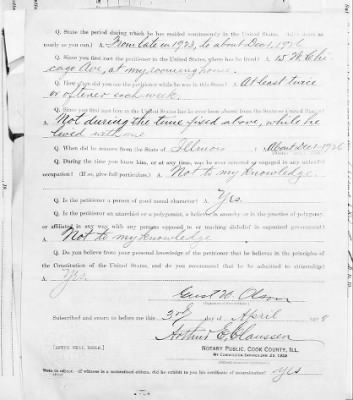 Q. State the period during which he has resided continuously in the United States.
nearly as you can.) A. From late in 1923, to about Dec 1, 1926
Q. Since you first met the petitioner in the United States, where has he lived? A. 15 W. Chi-
cago Ave, at my rooming house.
Q. How often did you see the petitioner while he was in this State? A. At least twice
or oftener each week.
Q. Since you first saw him in the United States has he ever been absent from the
A. Not during the time fixed above, while he
lived with me
Q. When did he remove from the State of Illinois A. About Dec 1-1926
Q. During the time you knew him, or at any time, was he ever engaged in any unlawful
occupation? (If so, give full particulars.) A. Not to my knowledge.
Q. Is the petitioner a person of good moral character? A. Yes.
Q. Is the petitioner an anarchist or a polygamist, a believer in anarchy or in the practice of polygamy
or affiliated in any way with any persons opposed to or teaching disbelief in organized government?
A. Not to my knowledge
Q. Do you believe from your personal knowledge of the petitioner that he believes in the principles of
the Constitution of the United States, and do you recommend that he be admitted to citizenship?
A. Yes.
Gust W. Olson
Subscribed and sworn to before me this 3rd day of April
Arthur E. Claussen
NOTARY PUBLIC, COOK COUNTY, ILL.
MY COMMISSION EXPIRES
Note to officer.—If witness is a naturalized citizen, did he exhibit to you his certificate of naturalization? Yes